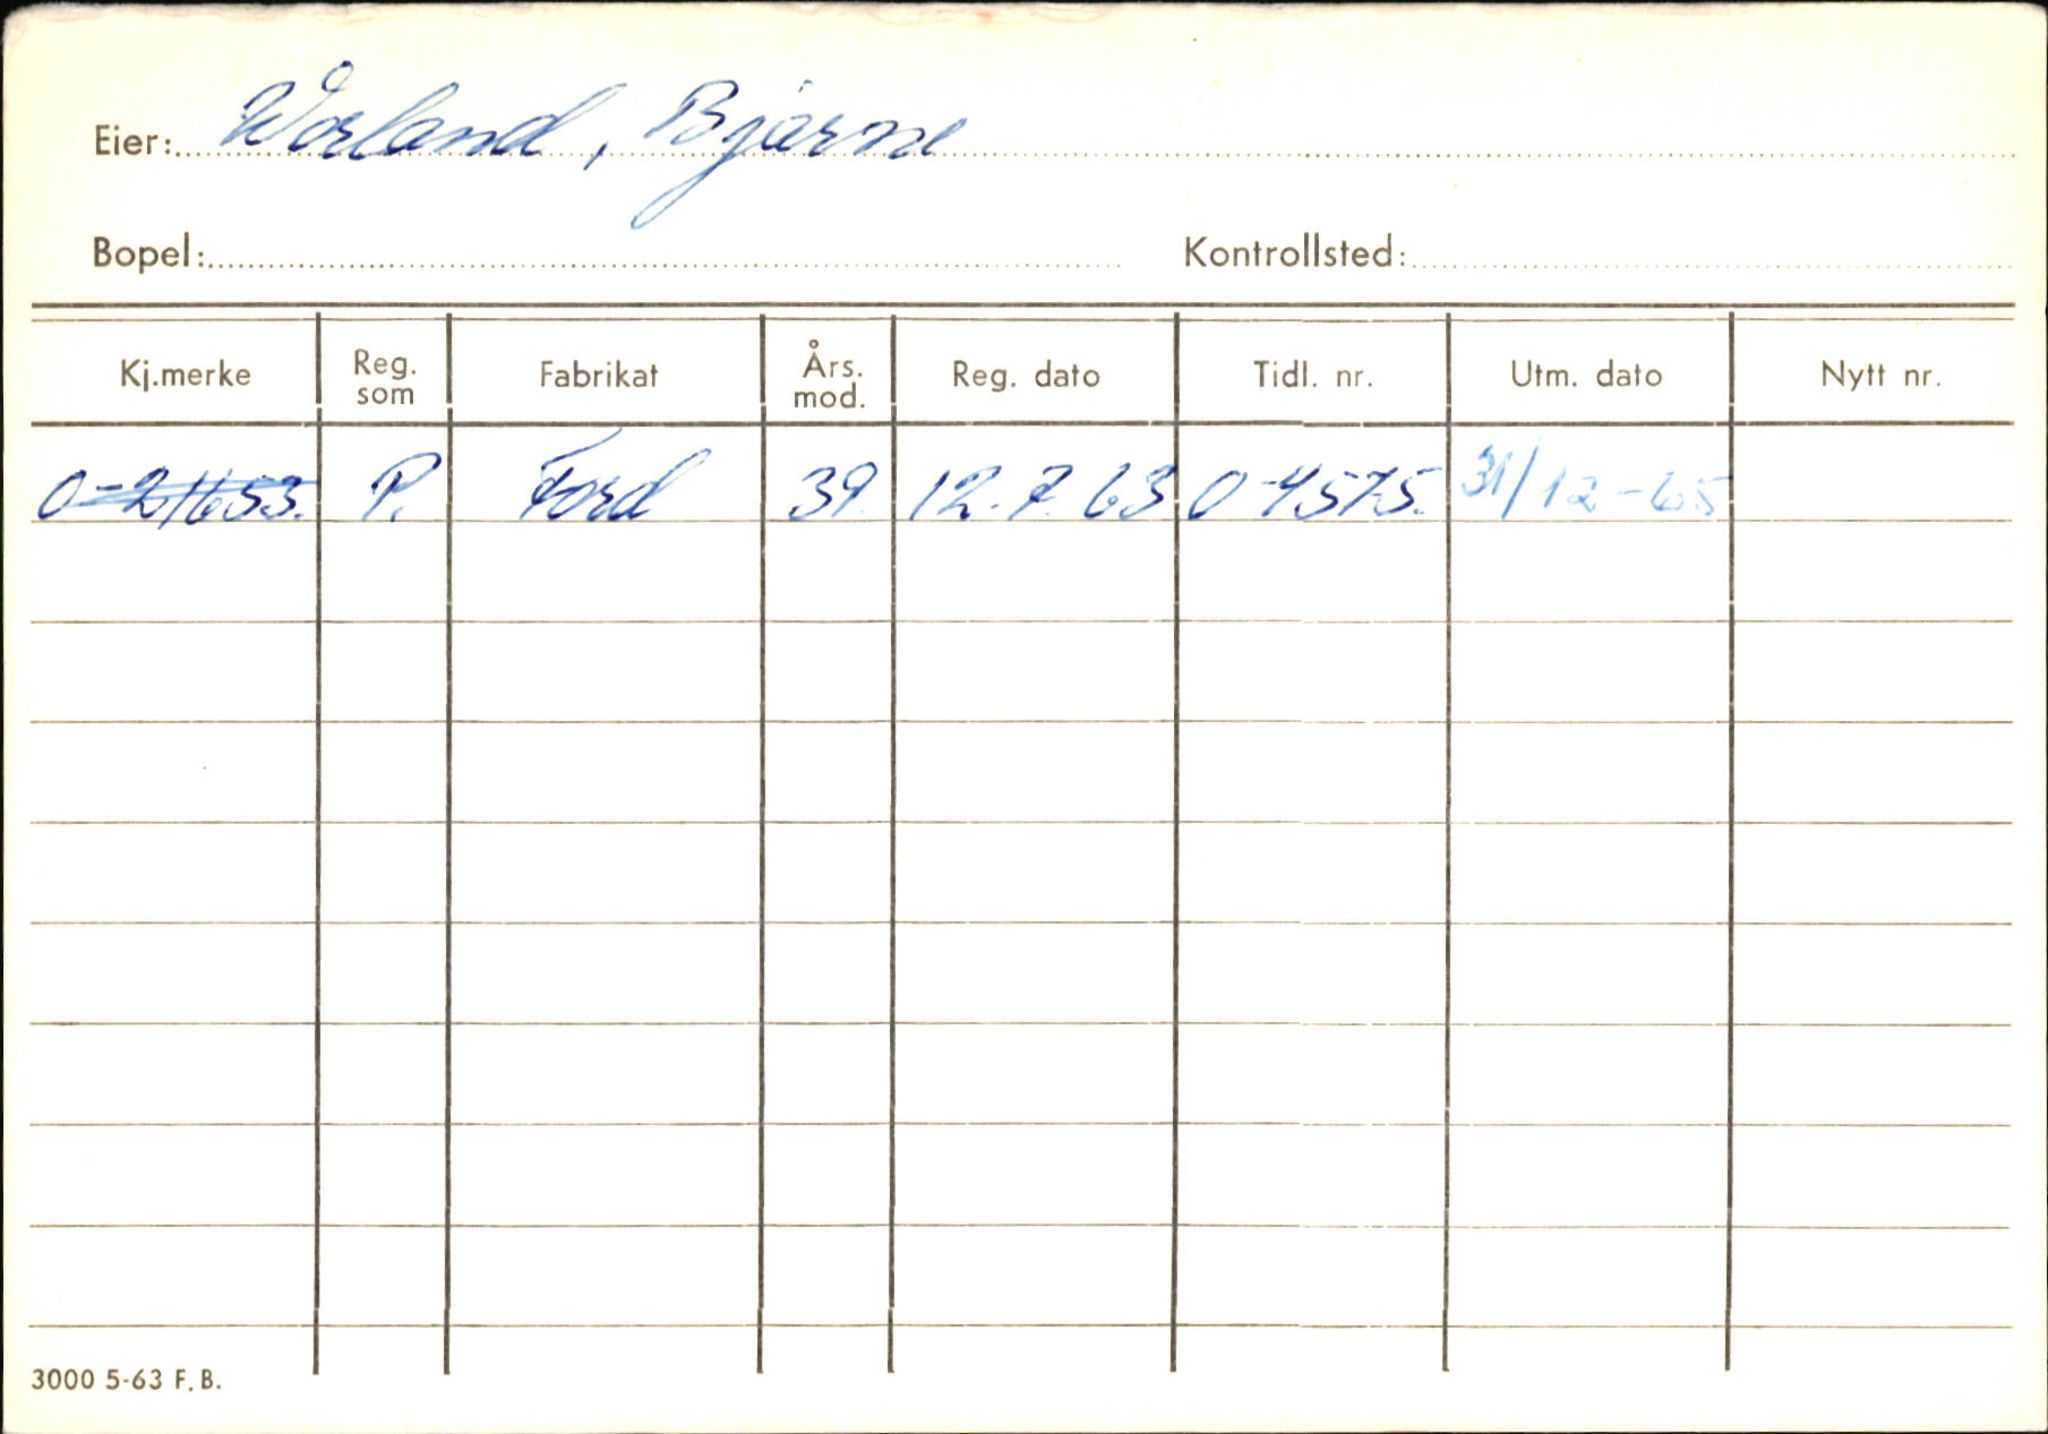 Eier: Wårland, Bjarne
Bopel: Kontrollsted:
Kj.merke Reg. som Fabrikat Års. mod. Reg. dato Tidl. nr. Utm. dato Nytt nr.
O-21653. P. Ford 39. 12.7.63 O-4575. 31/12-65
3000 5-63 F.B.